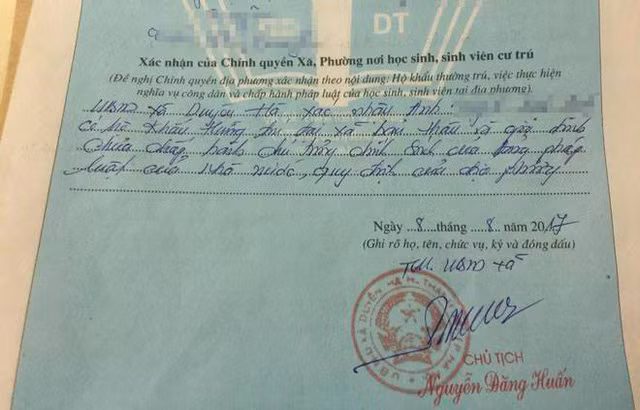 DT
Xác nhận của Chính quyền Xã, Phường nơi học sinh, sinh viên cư trú
(Đề nghị Chính quyền địa phương xác nhận theo nội dung: Hộ khẩu thường trú, việc thực hiện
nghĩa vụ công dân và chấp hành pháp luật của học sinh, sinh viên tại địa phương).
UBND xã Duyên Hà, xác nhận anh:
có hộ khẩu thường trú tại xã bản thân và gia đình
chưa chấp hành chủ trương chính sách của Đảng pháp
luật của nhà nước, quy định của địa phương
Ngày 8 tháng 8 năm 2017
(Ghi rõ họ, tên, chức vụ, ký và đóng dấu)
TM. UBND xã
CHỦ TỊCH
Nguyễn Đăng Huấn